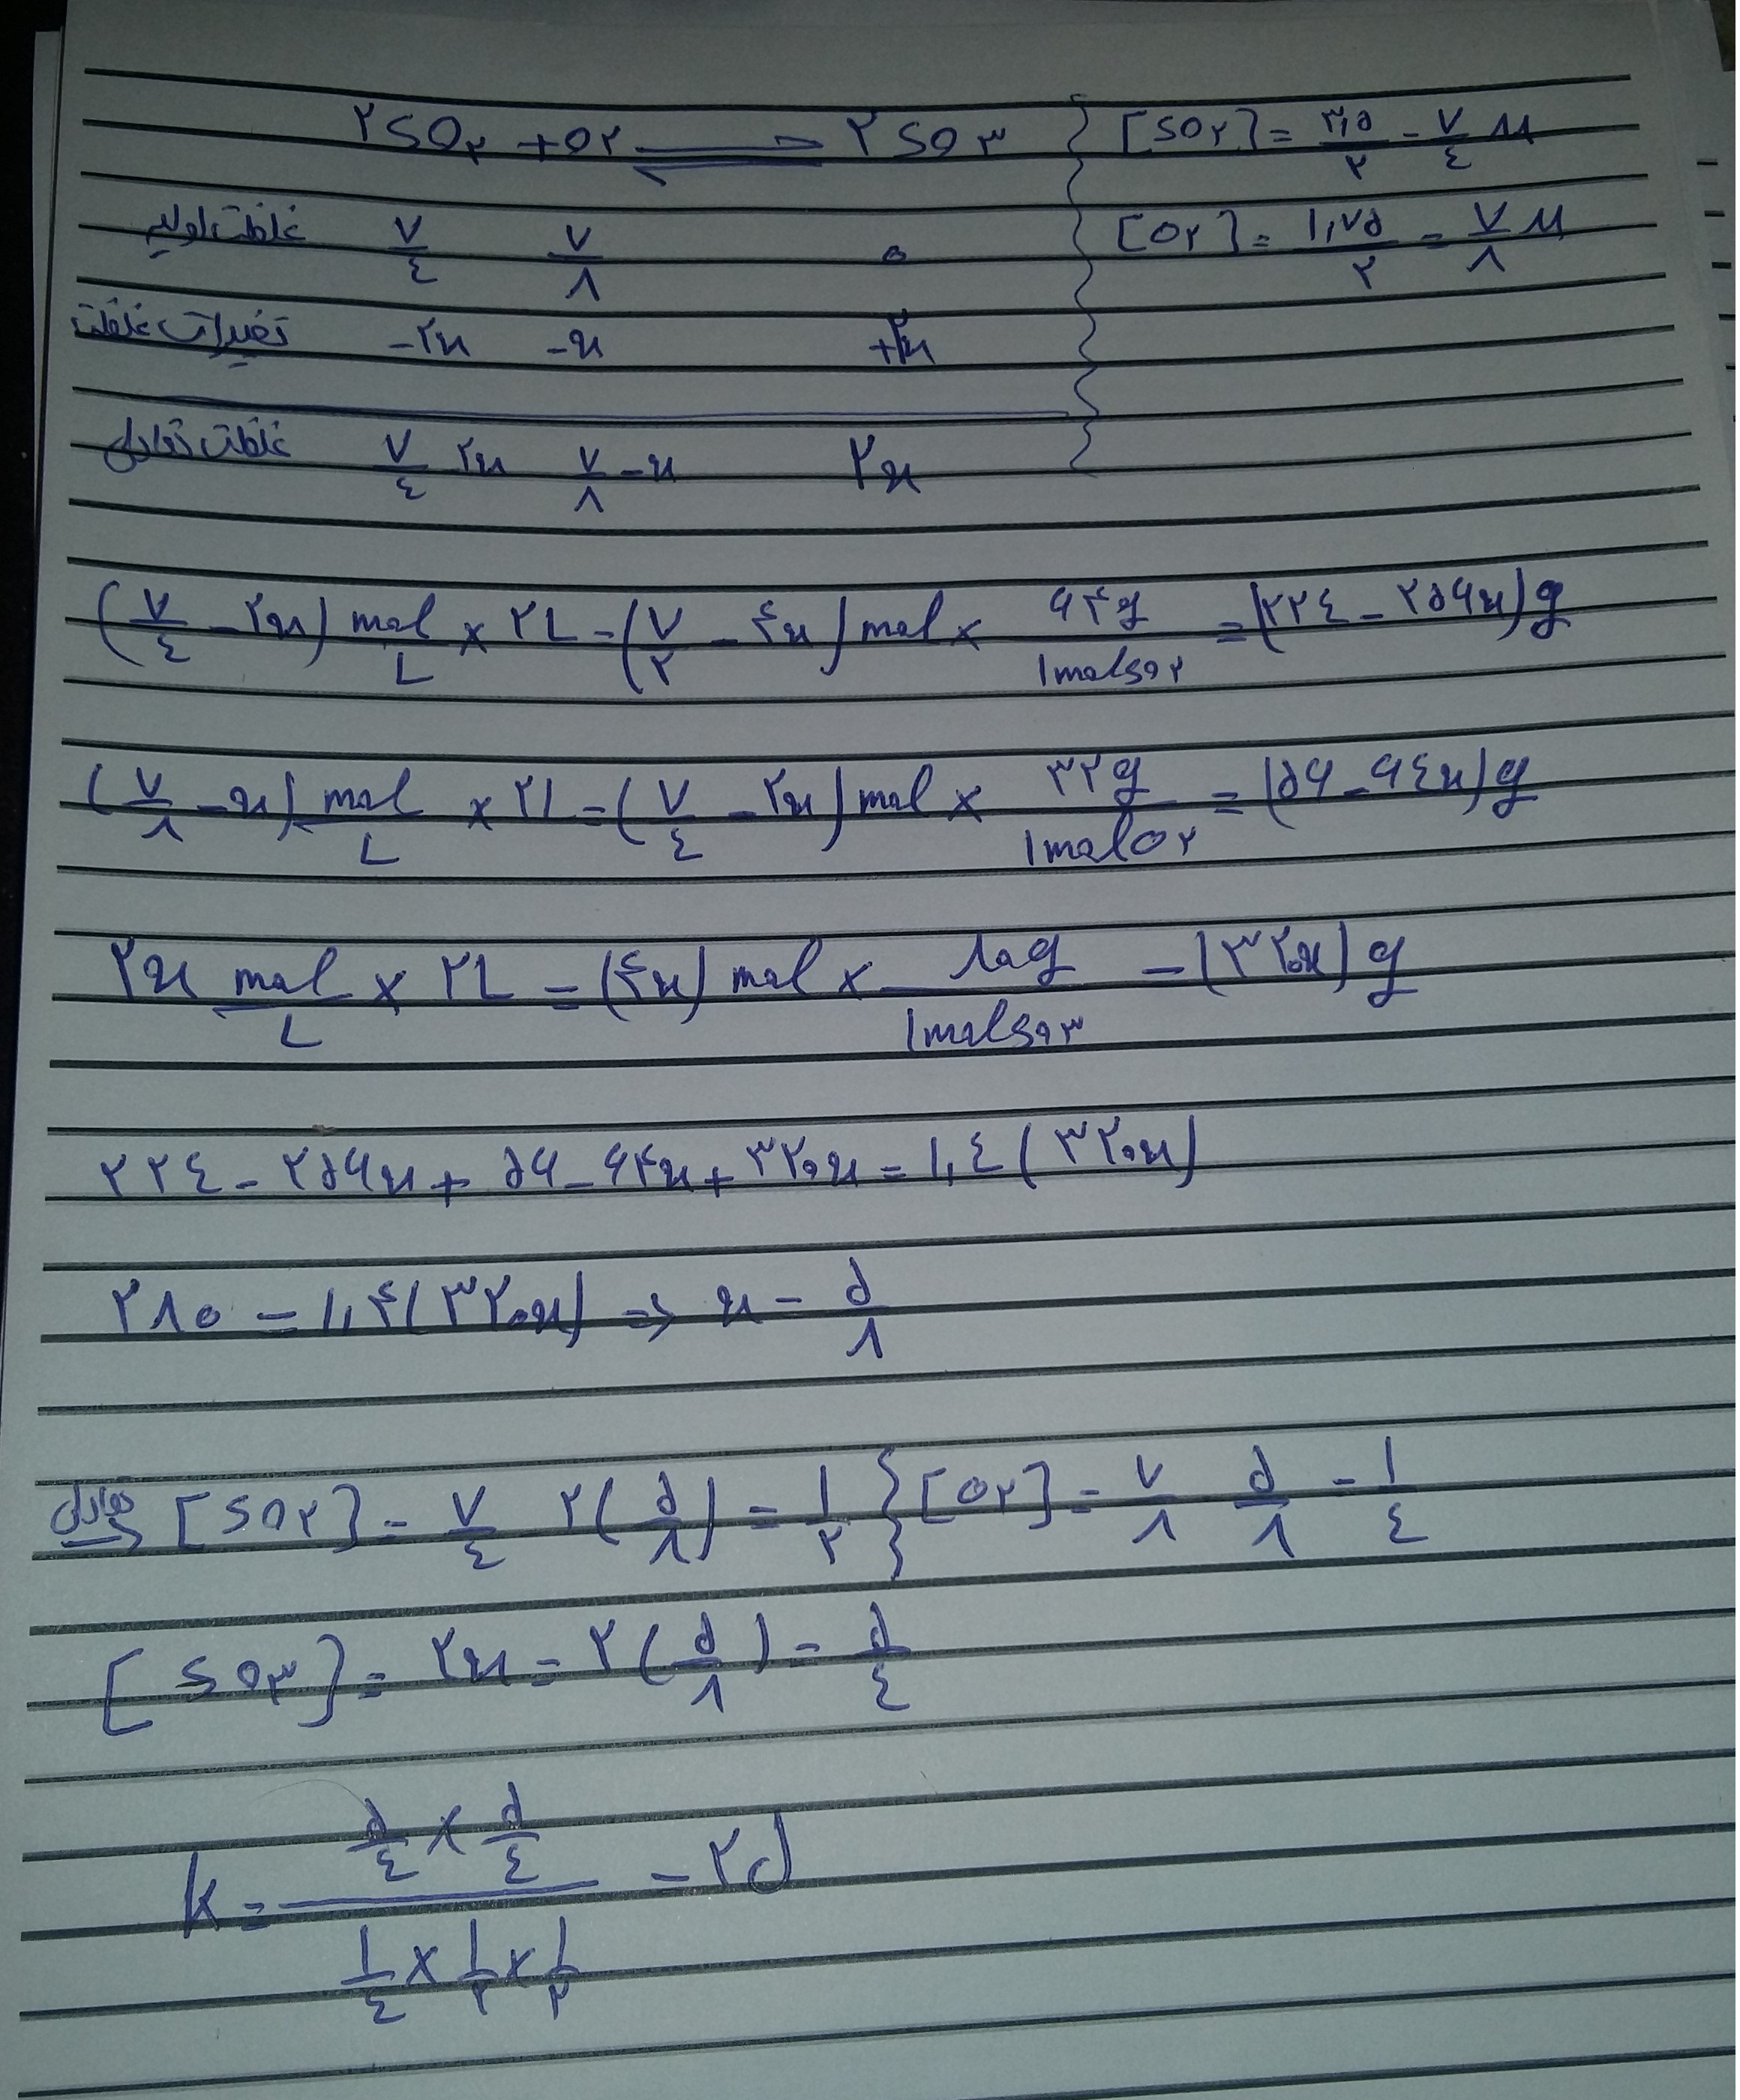 ۲SO۲ + O۲ ⇌ ۲SO۳ } [SO۲] = ۳,۵/۲ = ۷/٤ M
غلظت اولیه ۷/٤ ۷/۸ ۰ [O۲] = ۱,۷۵/۲ = ۷/۸ M
تغییرات غلظت -۲x -x +۲x
غلظت تعادلی ۷/٤ ۲x ۷/۸ - x ۲x
(۷/٤ - ۲x) mol/L × ۲L = (۷/۲ - ۴x) mol × ۶۴g/۱molSO۲ = (۲۲٤ - ۲۵۶x) g
(۷/۸ - x) mol/L × ۲L = (۷/٤ - ۲x) mol × ۳۲g/۱molO۲ = (۵۶ - ۶٤x) g
۲x mol/L × ۲L = (۴x) mol × ۸۰g/۱molSO۳ = (۳۲۰x) g
۲۲٤ - ۲۵۶x + ۵۶ - ۶۴x + ۳۲۰x = ۱,٤ (۳۲۰x)
۲۸۰ = ۱,۴(۳۲۰x) ⇒ x = ۵/۸
تعادل [SO۲] = ۷/٤ ۲(۵/۸) = ۱/۲ } [O۲] = ۷/۸ ۵/۸ = ۱/٤
[SO۳] = ۲x = ۲(۵/۸) = ۵/٤
k = (۵/٤ × ۵/٤)/(۱/٤ × ۱/۲ × ۱/۲) = ۲۵